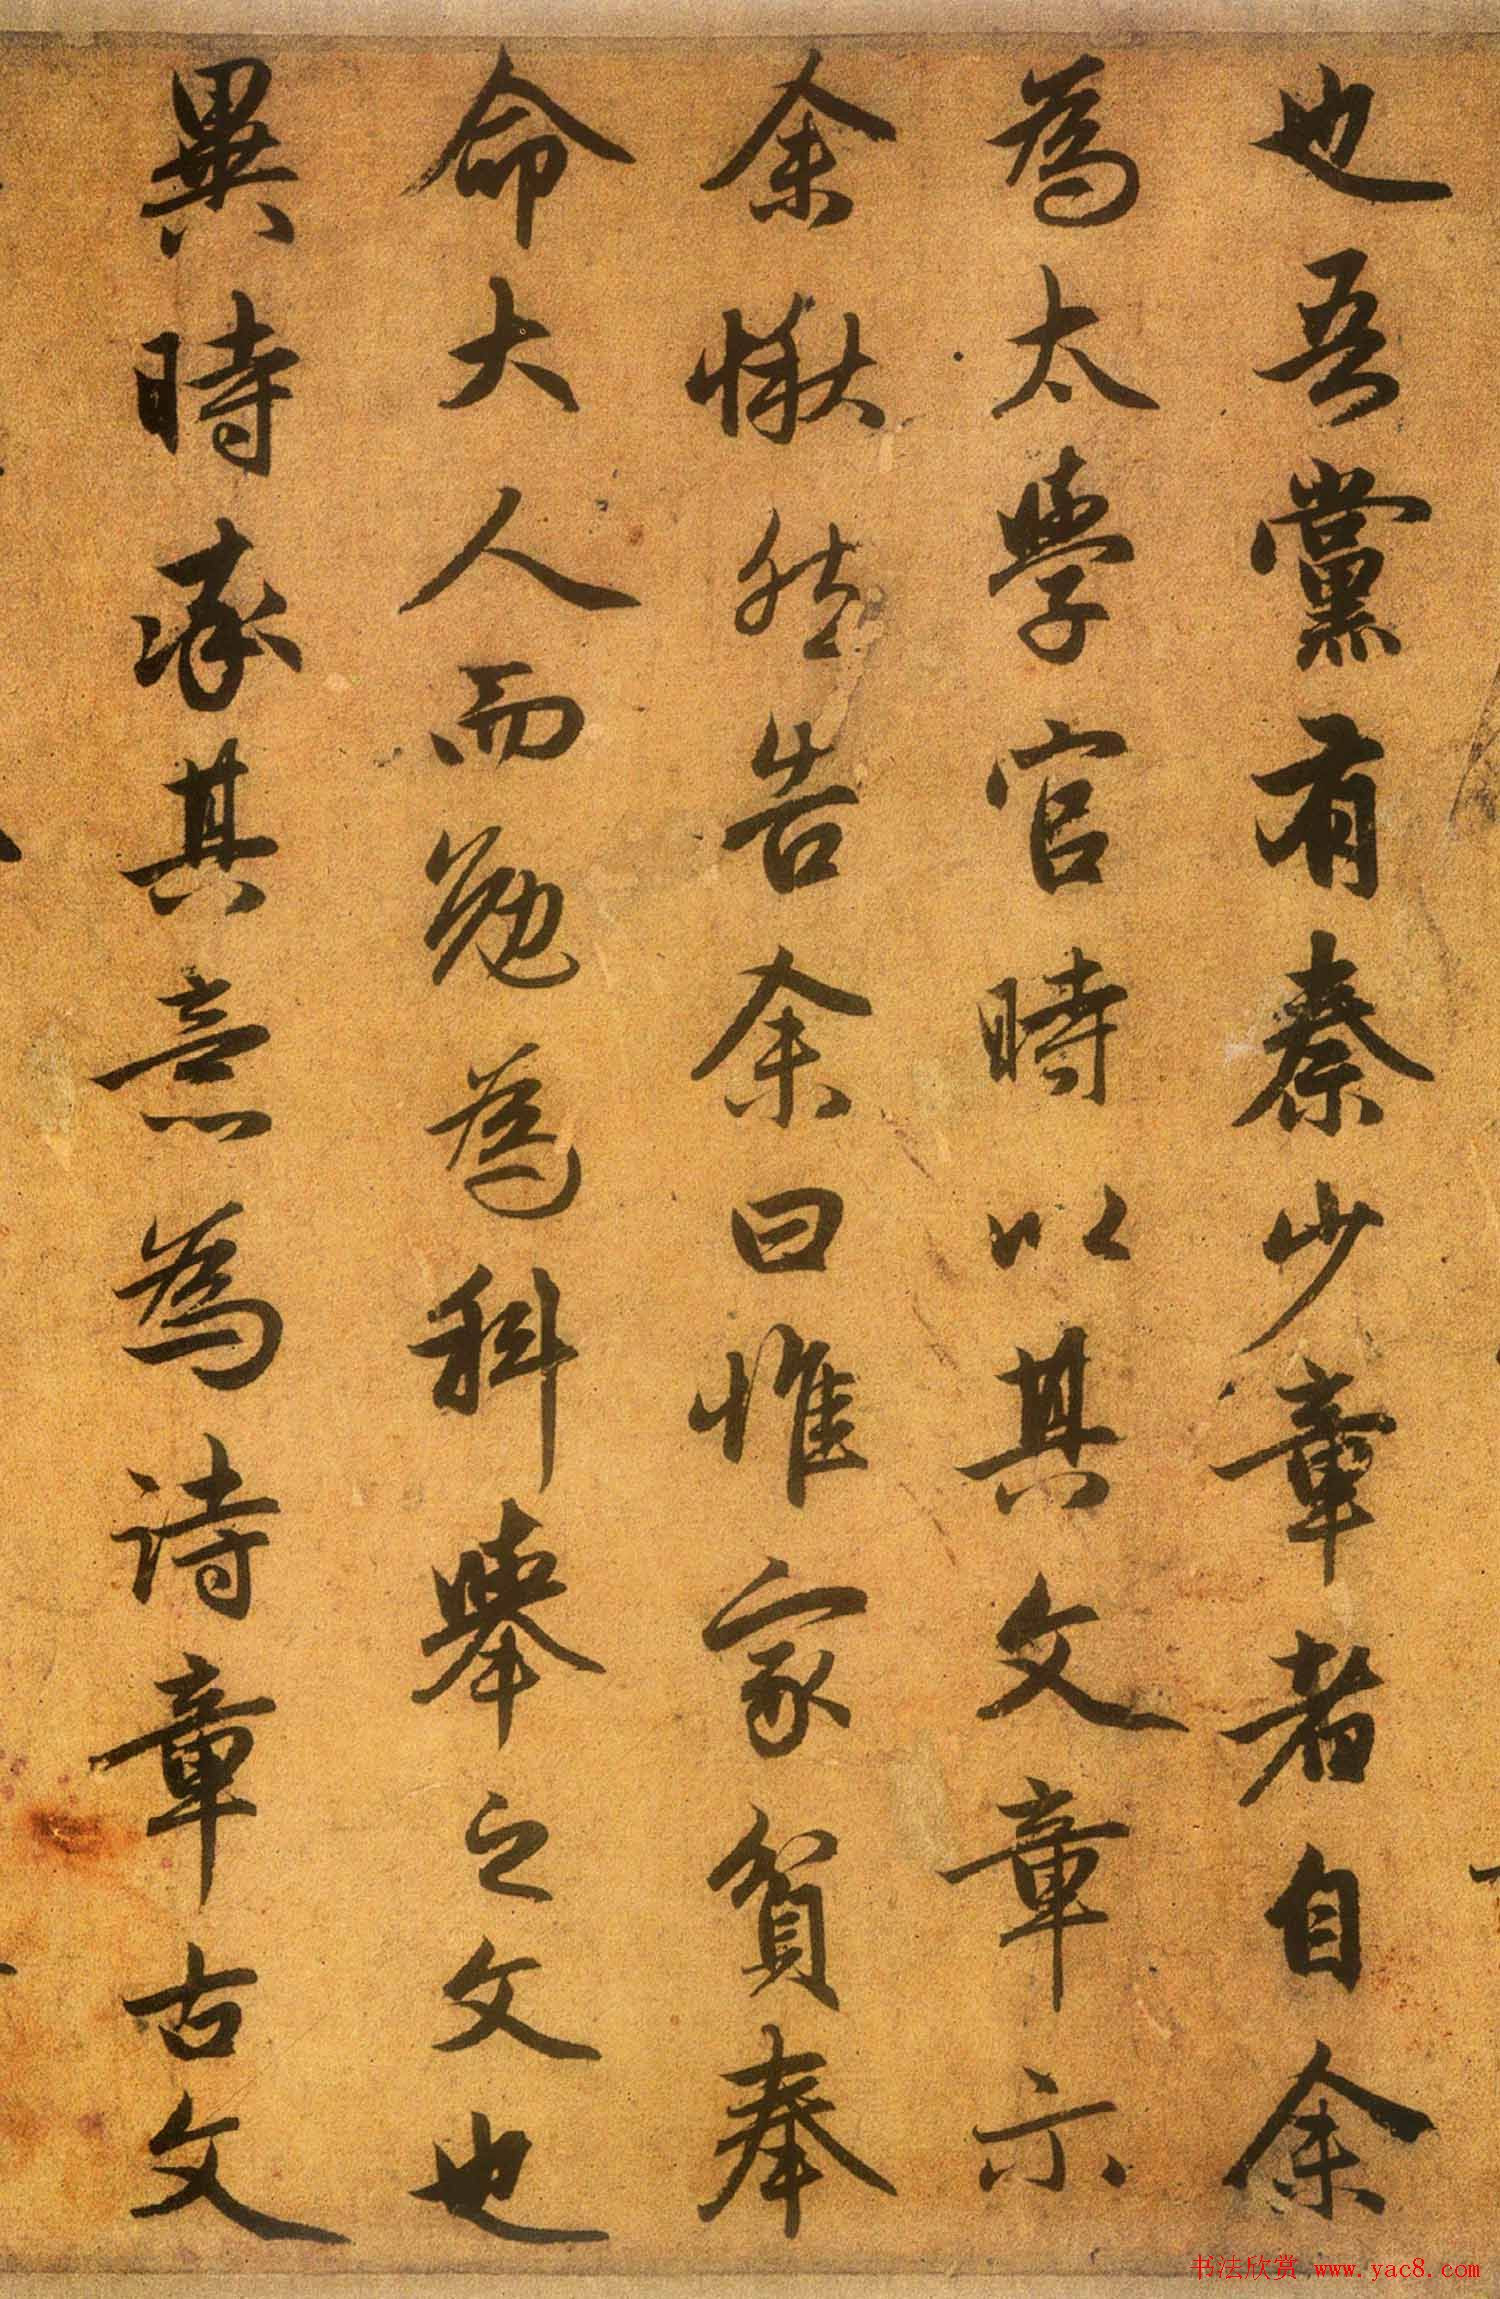 也吾黨有秦少章者自余
為太學官時以其文章示
余愀然告余曰惟家貧奉
命大人而勉為科舉之文也
異時率其意為詩章古文
书法欣赏 www.yac8.com